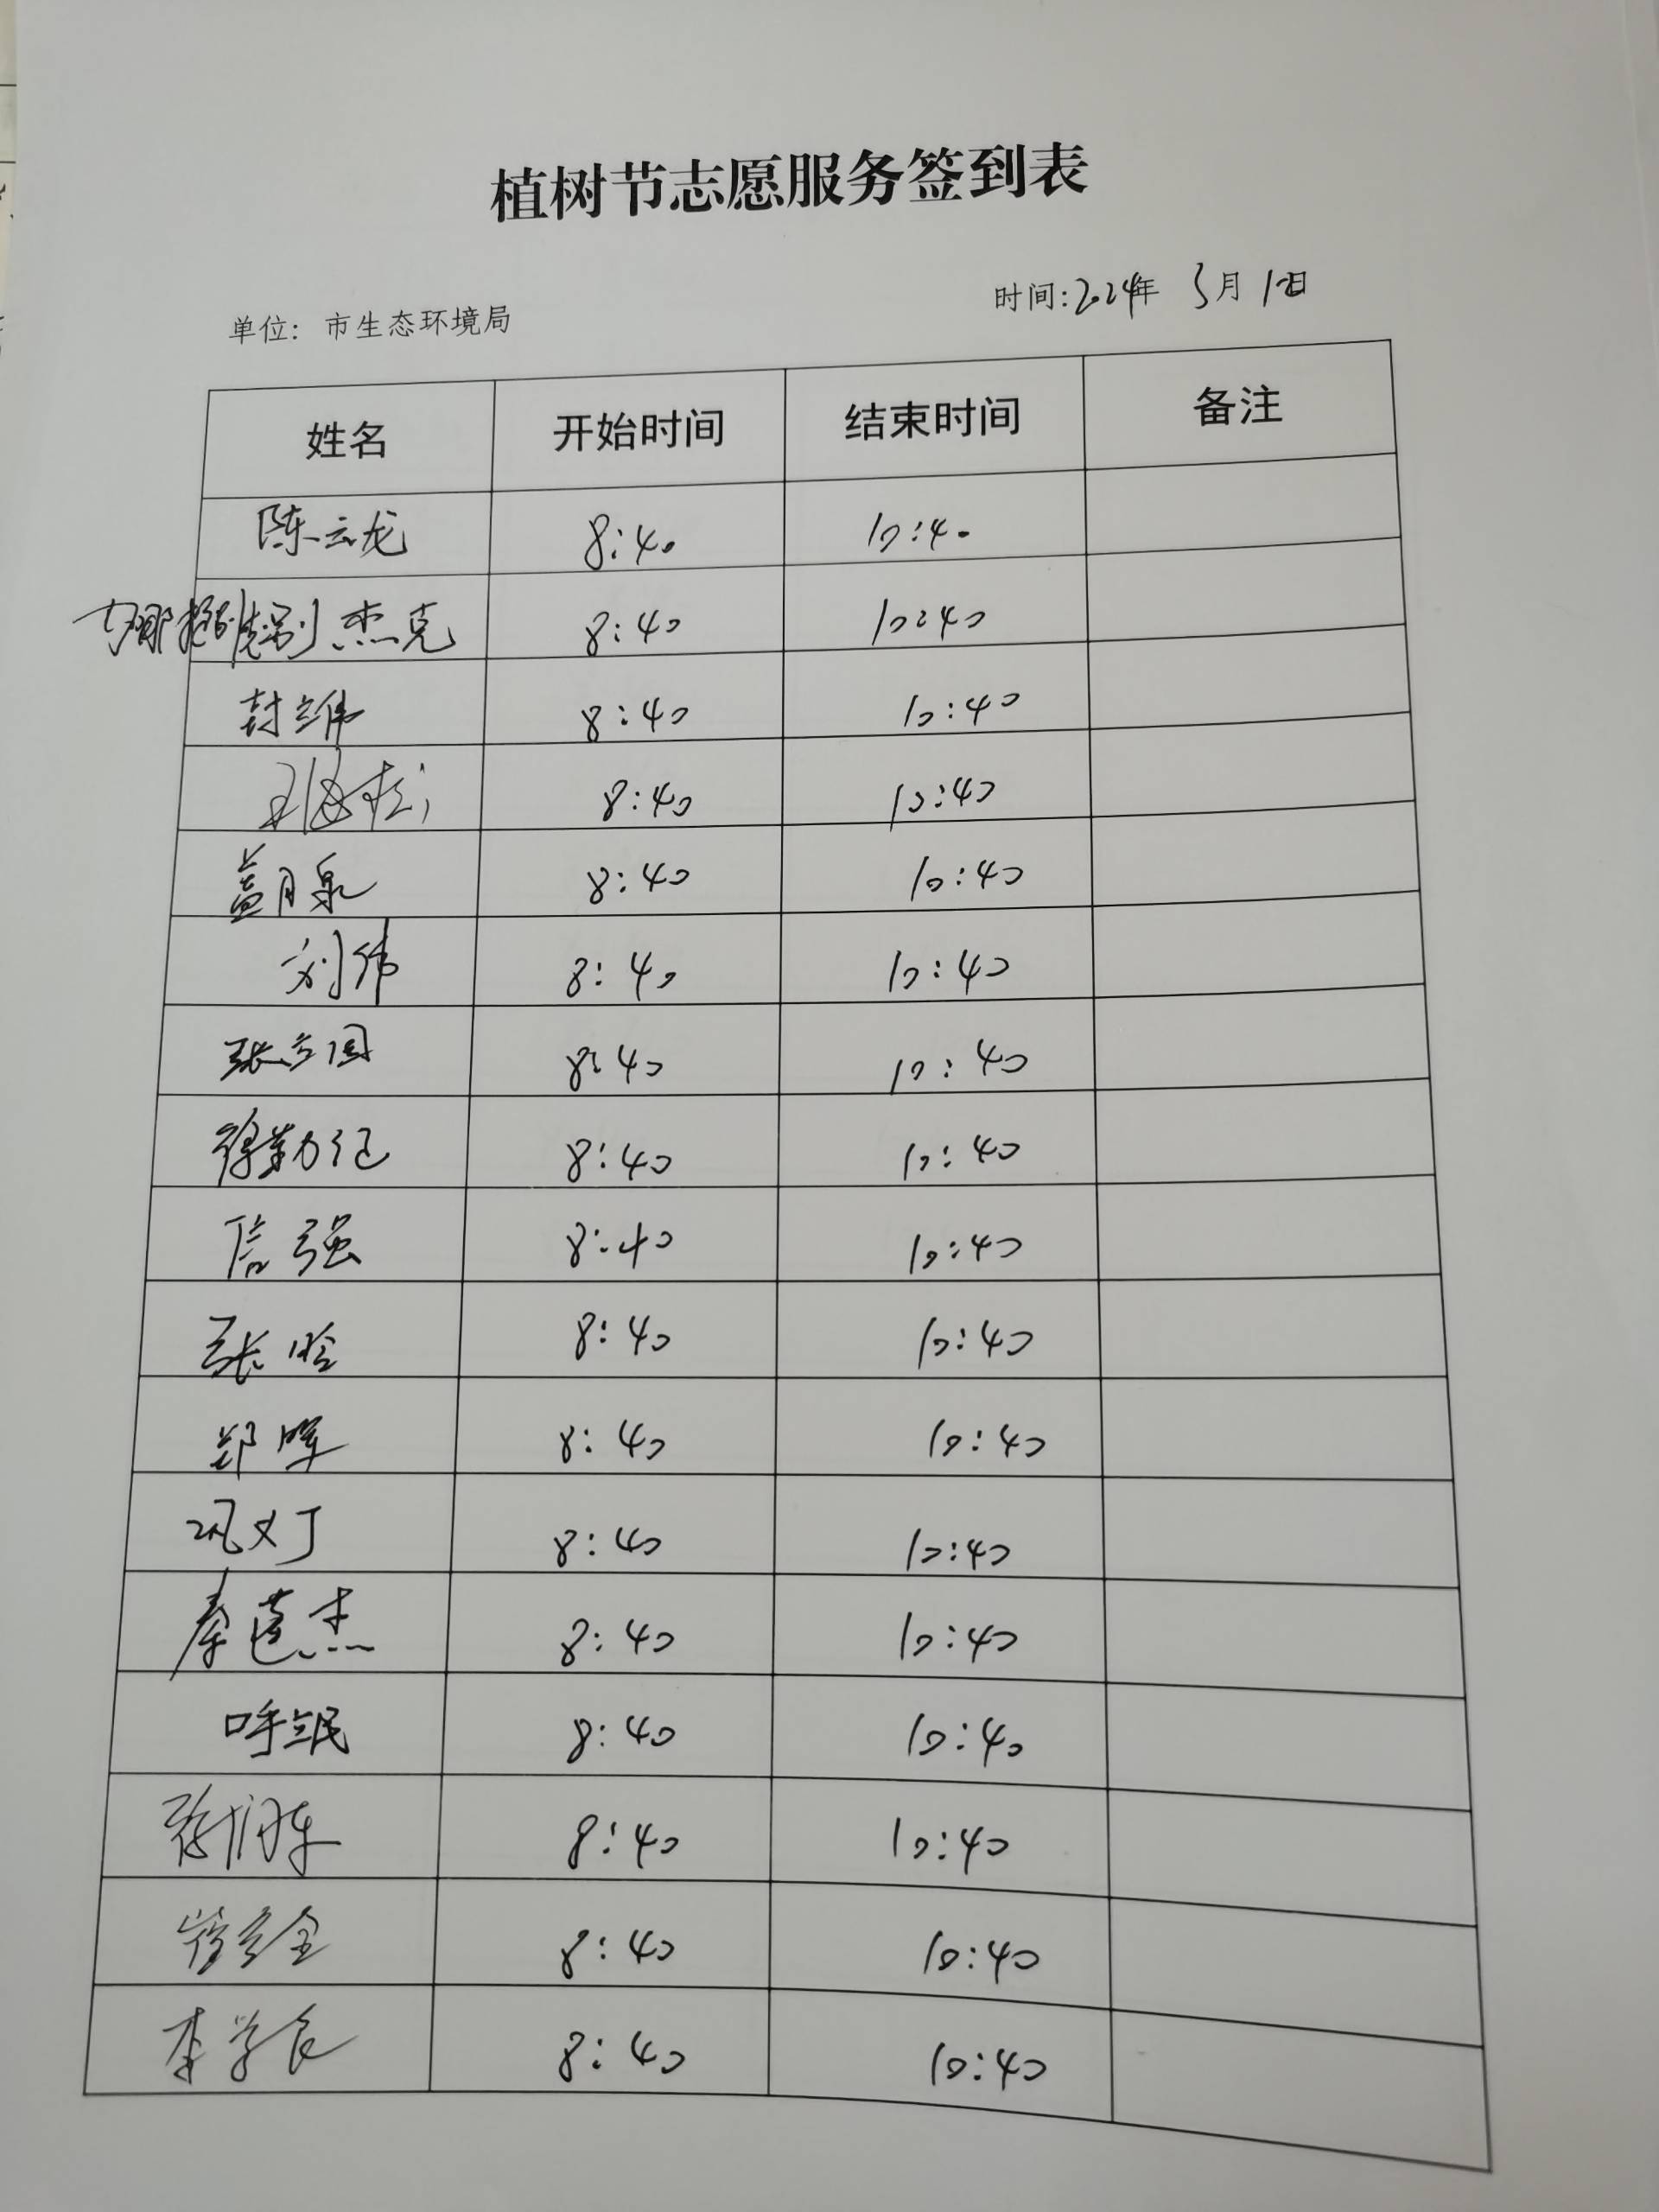 植树节志愿服务签到表
单位：市生态环境局
时间:2024年 3月12日
姓名 开始时间 结束时间 备注
陈云龙 8:40 10:40
杰克 8:40 10:40
封伟 8:40 10:40
8:40 10:40
盖月泉 8:40 10:40
刘伟 8:40 10:40
张立国 8:40 10:40
徐勤 8:40 10:40
信强 8:40 10:40
张晗 8:40 10:40
郑晖 8:40 10:40
巩文丁 8:40 10:40
秦道杰 8:40 10:40
呼民 8:40 10:40
8:40 10:40
8:40 10:40
李学良 8:40 10:40